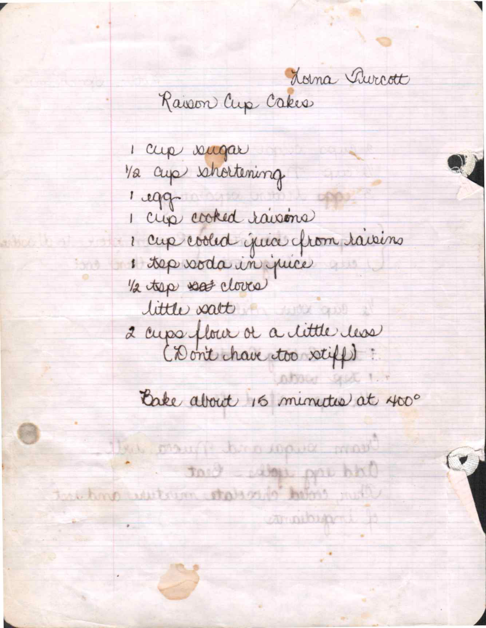 Lorna Burcott
Raison Cup Cakes
1 cup sugar
1/2 cup shortening
1 egg
1 cup cooked raisins
1 cup cooled juice from raisins
1 tsp soda in juice
1/2 tsp cloves
little salt
2 cups flour or a little less
(Don't have too stiff)
Bake about 15 minutes at 400°